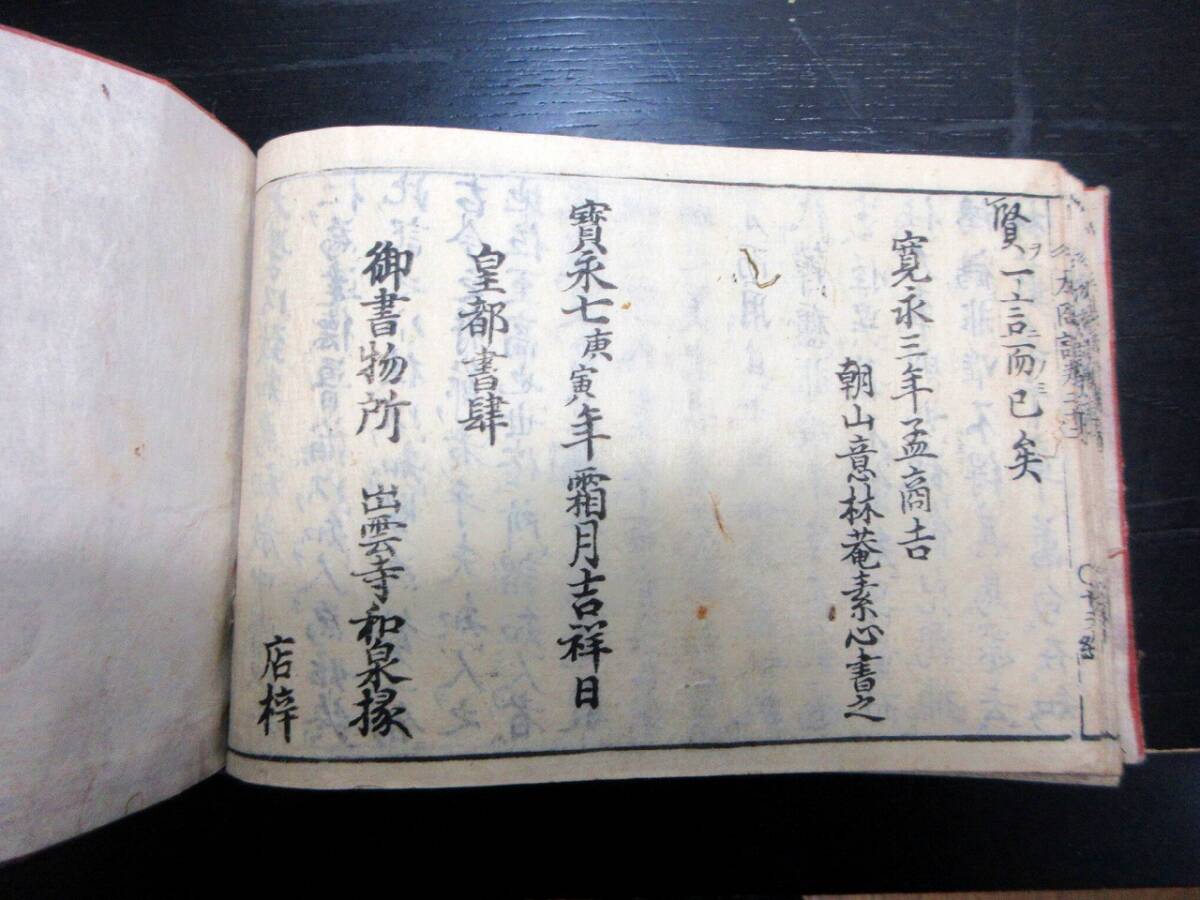 賢ヲ一言而已矣
寛永三年孟商吉
朝山意林菴素心書之
寶永七庚寅年霜月吉祥日
皇都書肆
御書物所 出雲寺和泉掾
店梓